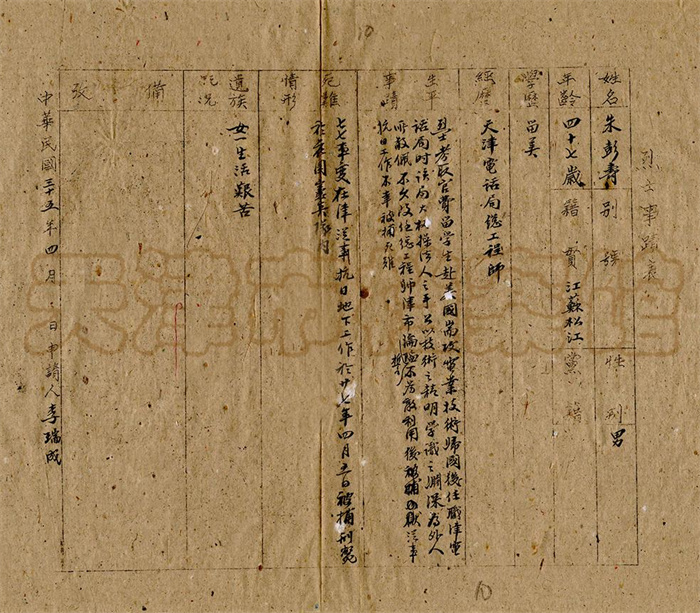 10
烈士事蹟表
姓名 朱彭壽 別號 性別 男
年齡 四十七歲 籍貫 江蘇松江 黨籍
學歷 留美
經歷 天津電話局總工程師
生平事蹟
烈士考取官費留學生赴美國專攻電業技術歸國後任職津電
話局時該局大權操洋人之手公以技術之精明學識之淵深為外人
所敬佩不久改任總工程師津市淪陷不為敵利用後從事
抗日工作不幸被捕死難
死難情形
七七事變在津從事抗日地下工作於廿七年四月五日被捕刑斃
於憲兵隊內
遺族狀況 女一生活艱苦
備考
中華民國三十五年四月 日申請人李瑞成
10